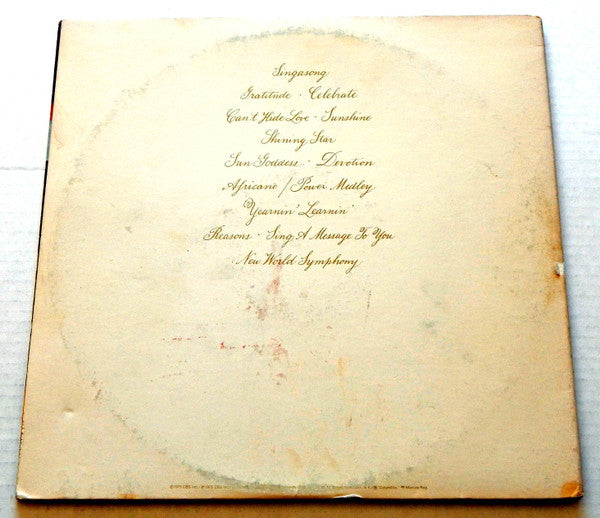 Singasong
Gratitude · Celebrate
Can't Hide Love · Sunshine
Shining Star
Sun Goddess · Devotion
Africano / Power Medley
Yearnin' Learnin'
Reasons · Sing A Message To You
New World Symphony